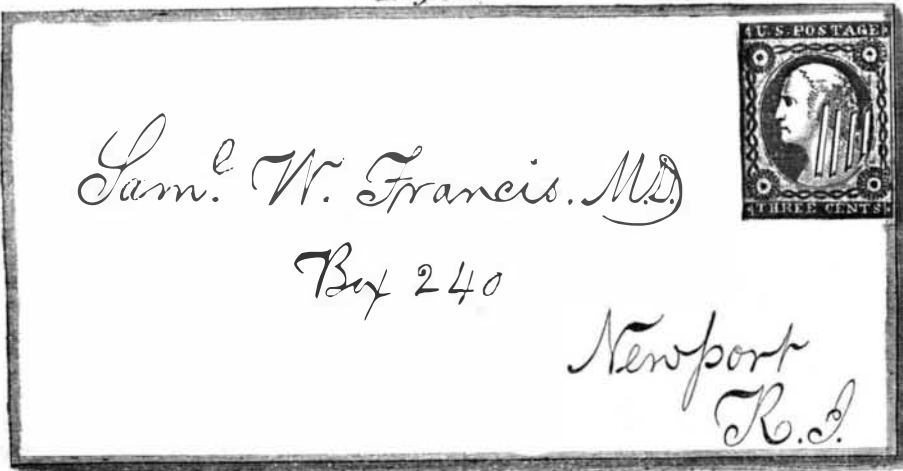 U.S. POSTAGE
THREE CENTS
Sam.l W. Francis. M.D.
Box 240
Newport
R.I.